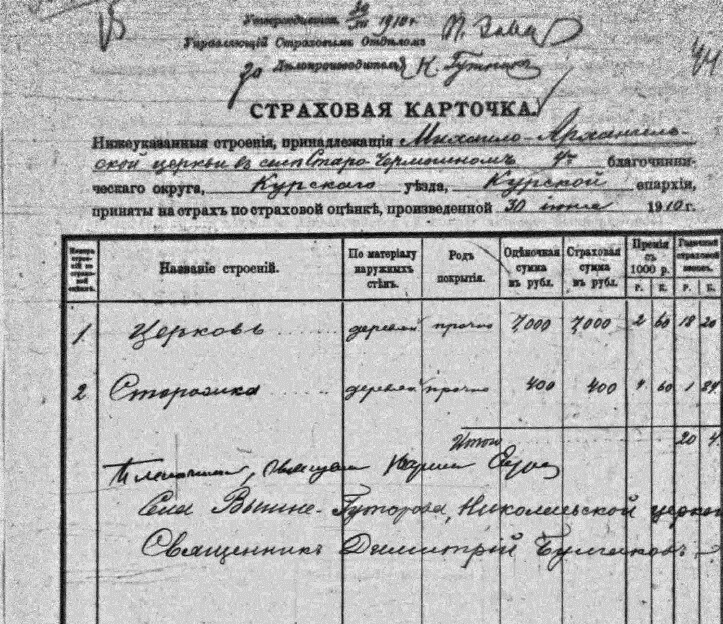 Утверждена 30/VI 1910 г.
Управляющій Страховымъ Отдѣломъ
За Дѣлопроизводителя К. Гутникъ
СТРАХОВАЯ КАРТОЧКА.
Нижеуказанныя строенія, принадлежащія Михаило-Архангель-
ской церкви въ селѣ Старо-Черемошномъ 4го благочинни-
ческаго округа, Курскаго уѣзда, Курской епархіи,
приняты на страхъ по страховой оцѣнкѣ, произведенной 30 іюня 1910 г.
Номеръ строеній по страховой оцѣнкѣ. Названіе строеній. По матеріалу наружныхъ стѣнъ. Родъ покрытія. Оцѣночная сумма въ рубл. Страховая сумма въ рубл. Премія съ 1000 р. Годичный страховой взносъ.
Р. К. Р. К.
1 Церковь деревян прочно 7,000 7,000 2 60 18 20
2 Сторожка деревян прочно 400 400 4 60 1 84
Итого 20 4
Села Вышне-Гуторова, Николаевской церкви
Священникъ Димитрій Булгаковъ